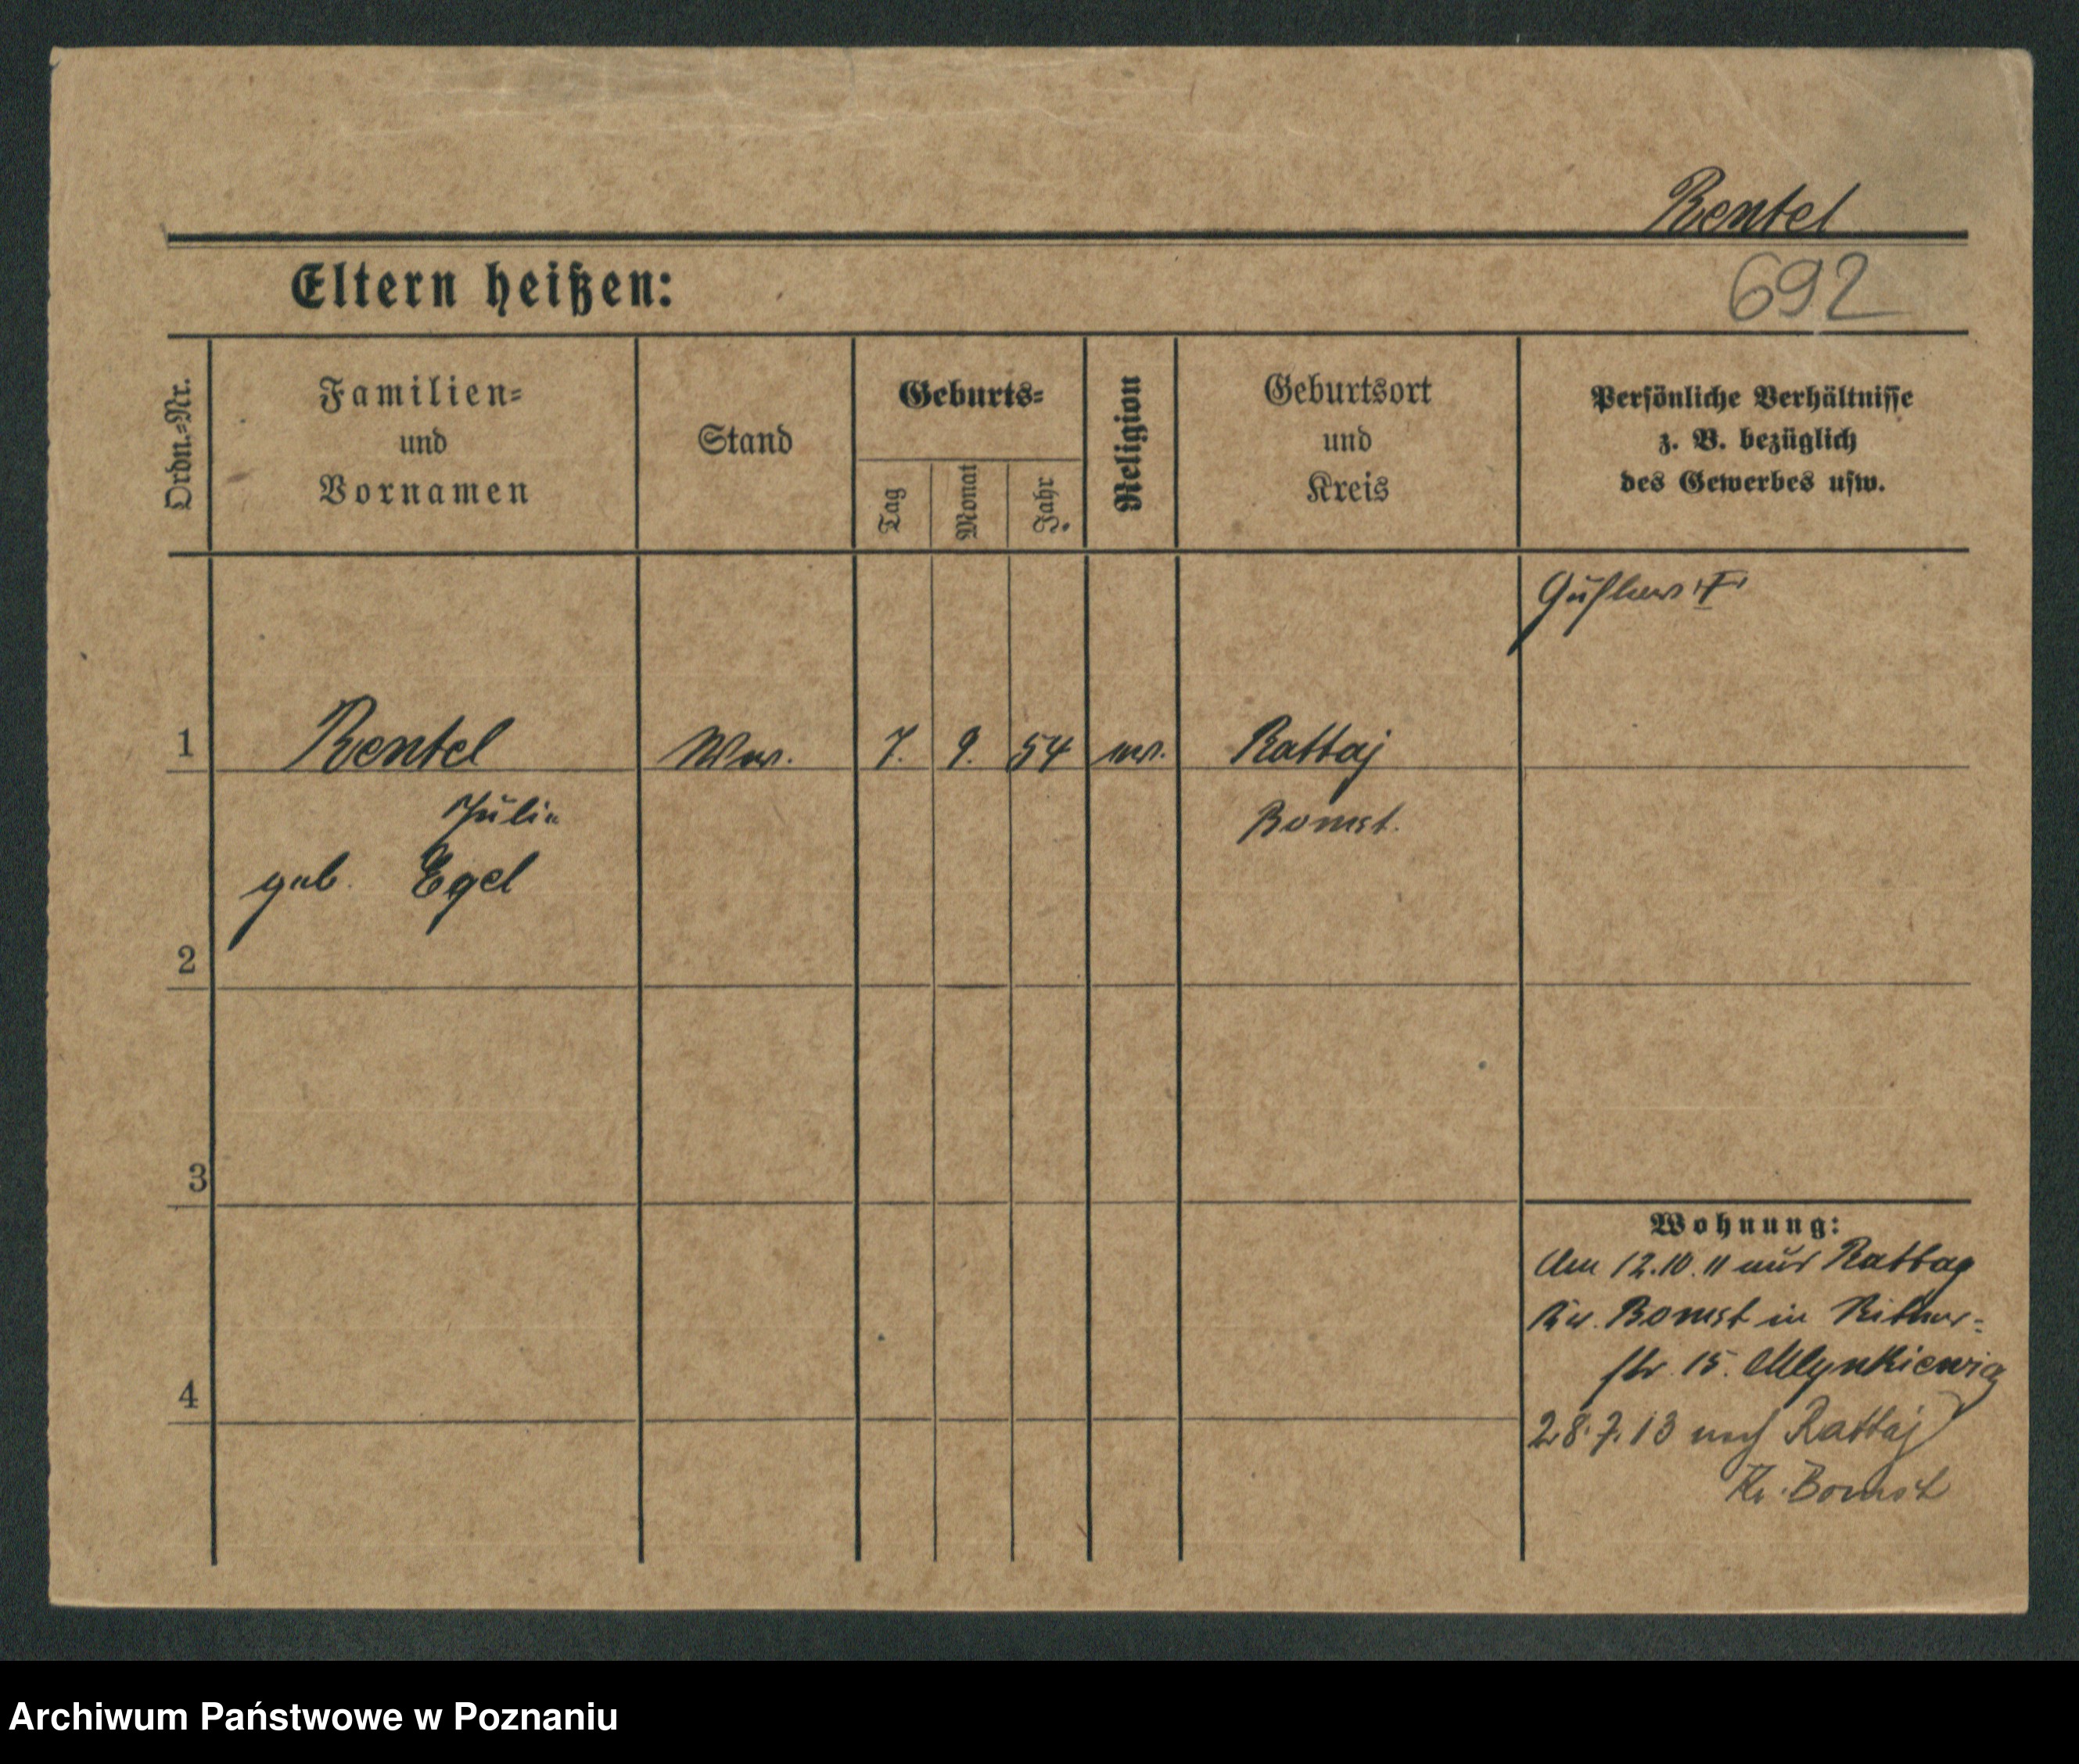 Rentel
Eltern heißen:
692
Ordn.=Nr.
Familien=
und
Vornamen
Stand
Geburts=
Tag
Monat
Jahr
Religion
Geburtsort
und
Kreis
Persönliche Verhältnisse
z. B. bezüglich
des Gewerbes usw.
1 Rentel Ww. 7. 9. 54 ev. Rattaj
Julia Bomst.
geb. Egel
2
3
4
Wohnung:
Am 12.10.11 aus Rattay
Kr. Bomst in Ritter=
str. 15. Mlynkiewicz
28.7.13 nach Rattaj
Kr. Bomst
Archiwum Państwowe w Poznaniu